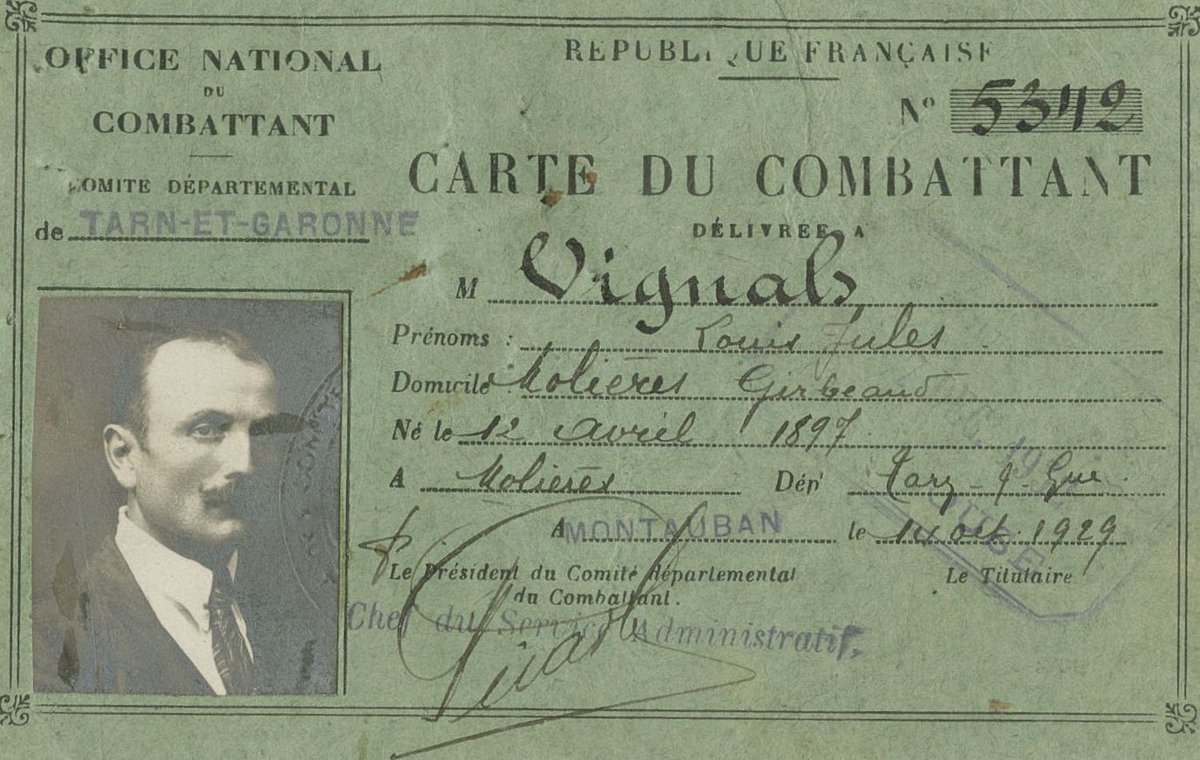 OFFICE NATIONAL
DU
COMBATTANT
COMITE DÉPARTEMENTAL
de TARN-ET-GARONNE
REPUBLIQUE FRANÇAISE
Nº 5342
CARTE DU COMBATTANT
DÉLIVRÉE A
M Vignals
Prénoms : Louis Jules
Domicile Molières Girbeaud
Né le 12 avril 1897
A Molières Dépt Tarn-&-Gne
A MONTAUBAN le 14 oct. 1929
Le Président du Comité départemental
du Combattant.
Le Titulaire
Chef du Service Administratif.